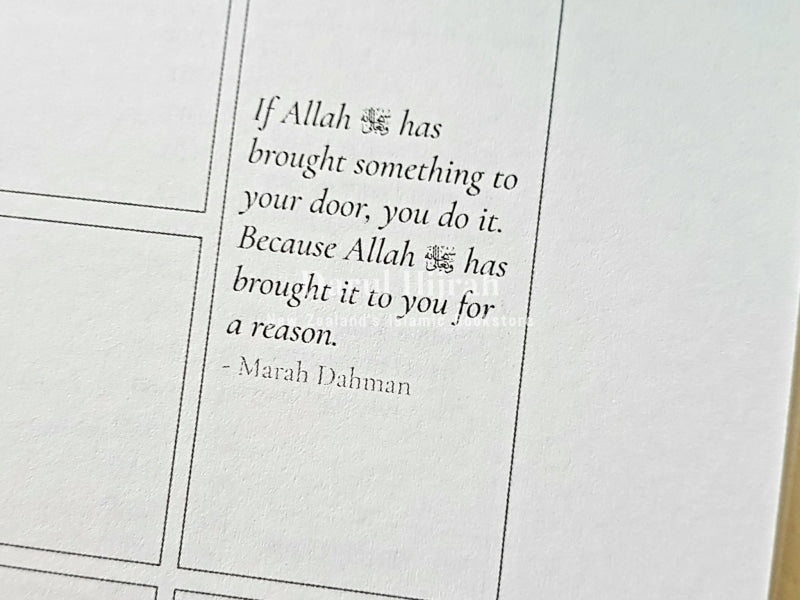 If Allah has
brought something to
your door, you do it.
Because Allah has
brought it to you for
a reason.
- Marah Dahman
New Zealand's Islamic Bookstore